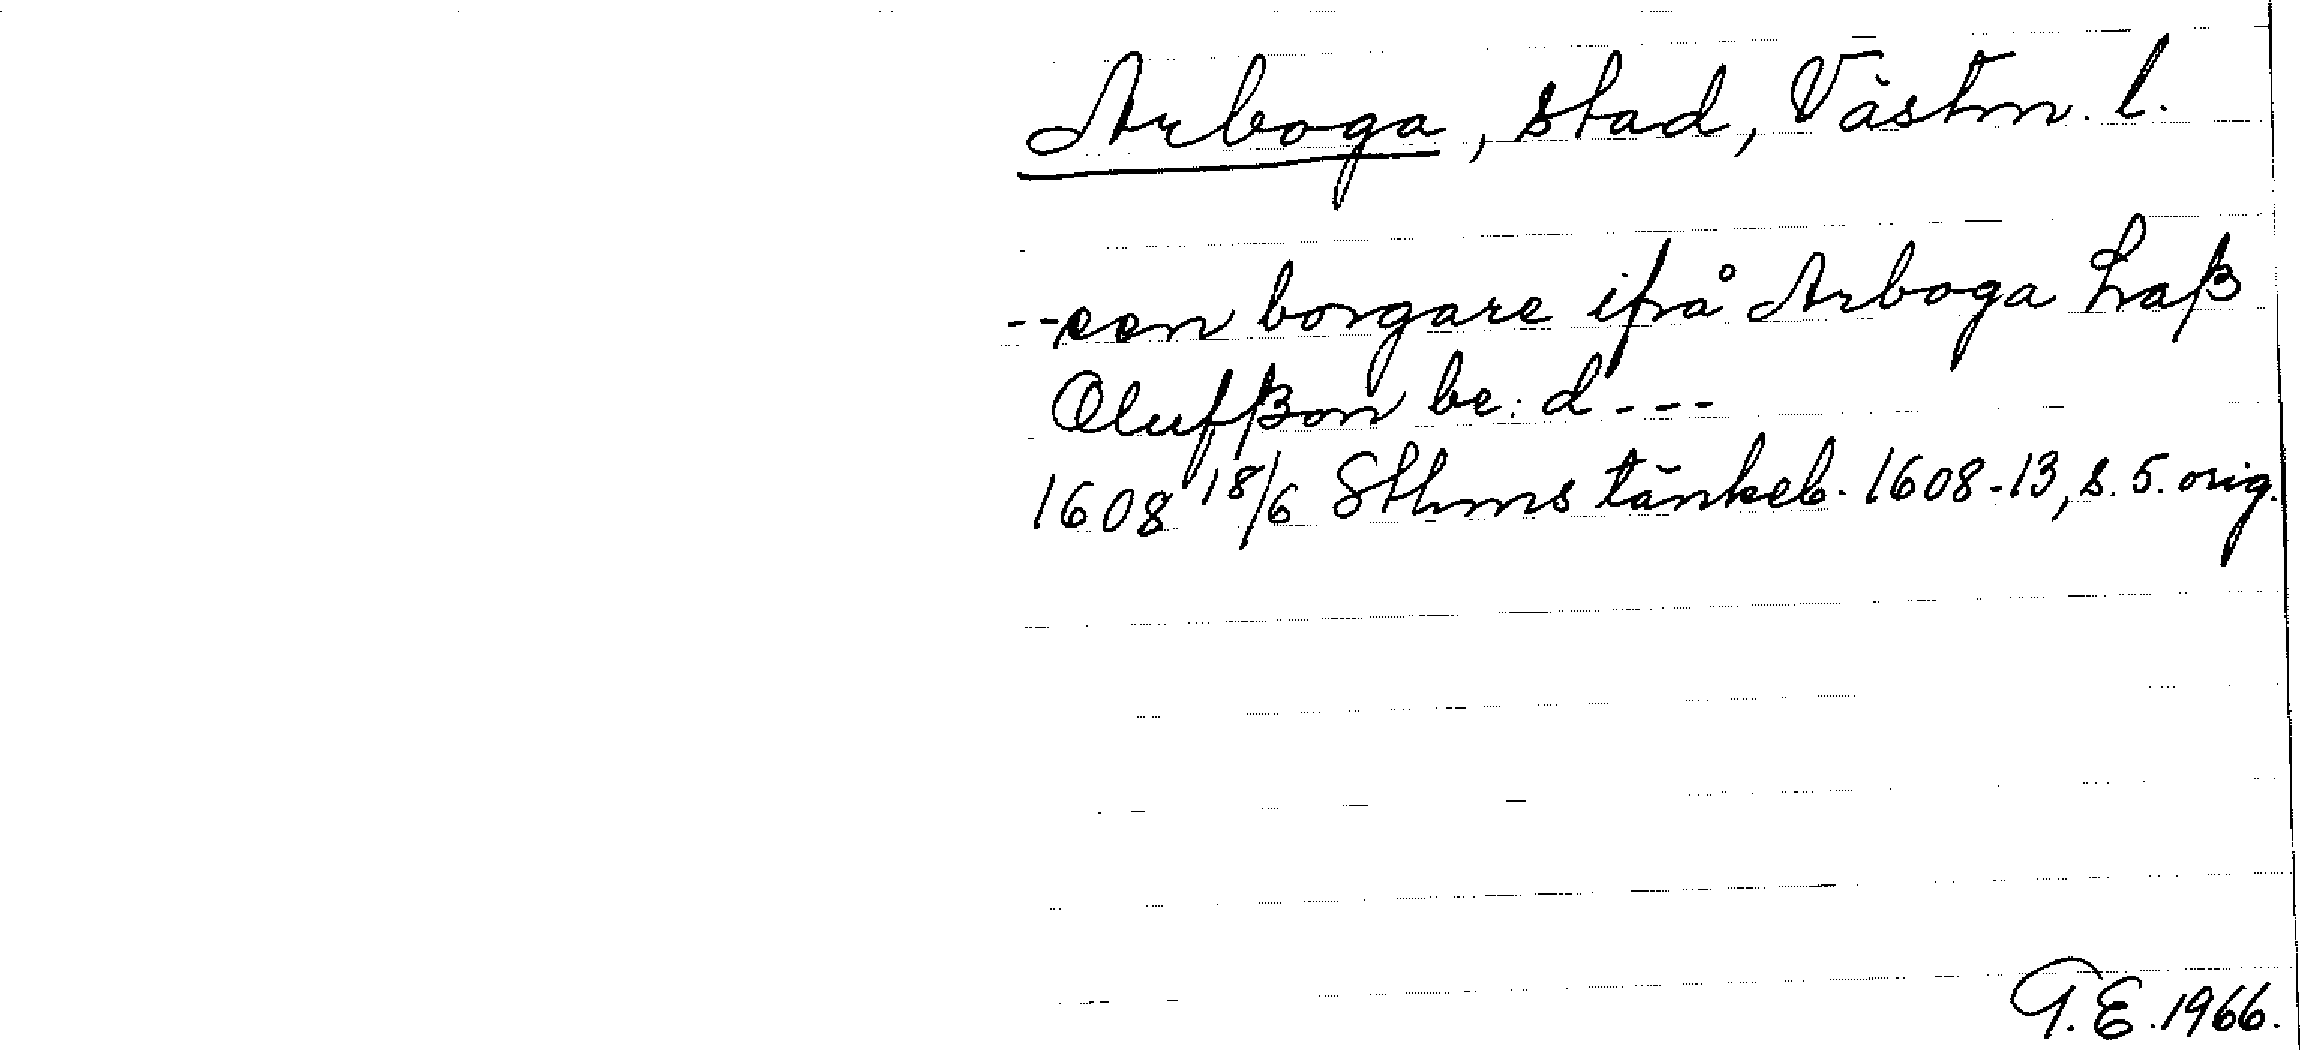 Arboga, stad, Västm. l.
--een borgare ifrå Arboga Laß
Olufßon be:d---
1608 18/6 Sthms tänkeb. 1608-13, s. 5. orig.
T.E. 1966.